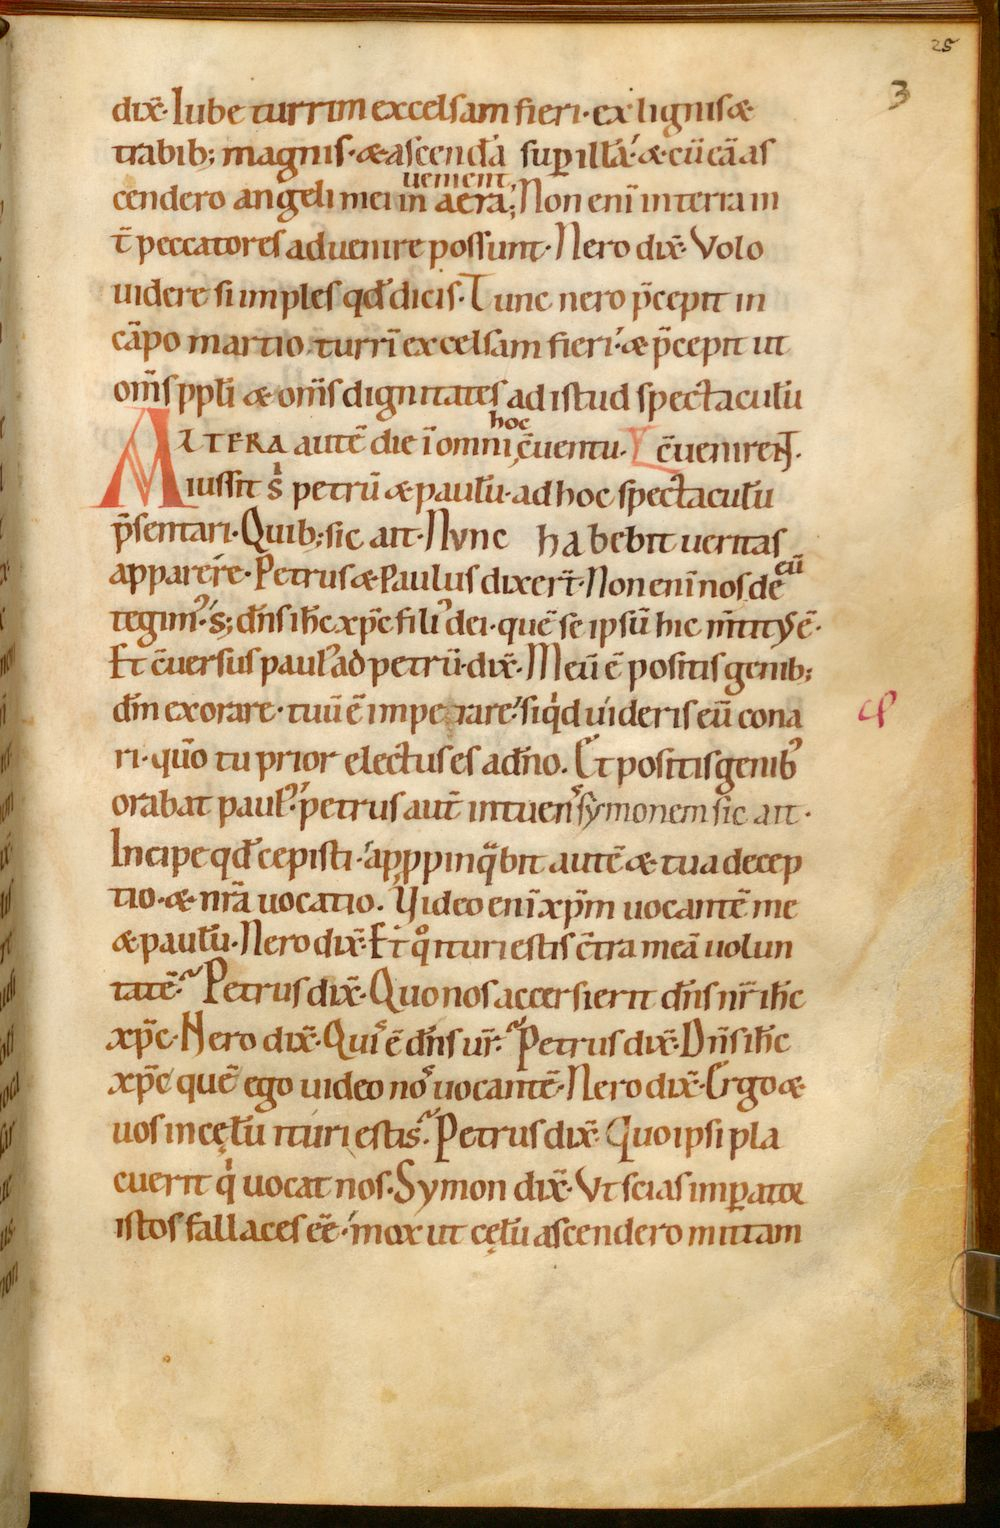 25
3
dix̄· Iube turrim excelsam fieri· ex lignis &
trabib; magnis· & ascendā sup illā· & cū cā as
uenient
cendero angeli mei in aera; Non enī in terra in
t̄ peccatores aduenire possunt· Nero dix̄· Volo
uidere si imples qd̄ dicis· Tunc nero p̄cepit in
cāpo martio turrī excelsam fieri· & p̄cepit ut
om̄s ppłi & om̄s dignitates ad istud spectaculū
hoc
ALTERA autē die ī omni c̄uentu· c̄uenirent·
iussit s̄ petrū & paulū· ad hoc spectaculū
p̄sentari· Quib; sic ait· Nunc habebit ueritas
eū
apparere· Petrus & Paulus dixer̄t· Non enī nos de
tegim᾿· s; dn̄s ih̄c xp̄c fili᾿ dei· quē se ipsū hic m̄titus ē·
Et c̄uersus paul᾿ ad petrū· dix̄· Meū ē positis genib;
dm̄ exorare· tuū ē impetrare· siqd uideris eū cona
ri· qm̄o tu prior electus es a dn̄o. Et positis genib᾿
orabat paul᾿· petrus aut̄ intuens symonem sic ait·
Incipe qd̄ cepisti· appropinqbit autē & tua decep
tio· & nr̄a uocatio. Video enī xp̄m uocantē me
& paulū· Nero dix̄· Et qo ituri estis c̄tra meā uolun
tatē· Petrus dix̄· Quo nos accersierit dn̄s nr̄ ih̄c
xp̄c· Nero dix̄· Quis ē dn̄s ur̄· Petrus dix̄· Dn̄s ih̄c
xp̄c quē ego uideo nos uocantē· Nero dix̄· Ergo &
uos in cęlū ituri estis· Petrus dix̄· Quo ipsi pla
cuerit qi uocat nos· Symon dix̄· Vt scias impator
istos fallaces eē· mox ut cęlū ascendero mittam